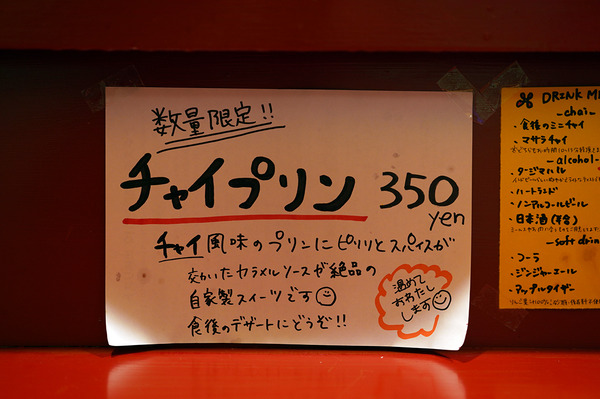 数量限定!!
チャイプリン 350
yen
チャイ風味のプリンにピリリとスパイスが
効いたカラメルソースが絶品の
自家製スイーツです
食後のデザートにどうぞ!!
温めて
おわたし
します
DRINK ME
-chai-
・食後のミニチャイ
・マサラチャイ
-alcohol-
・タージマハル
・ハートランド
・ノンアルコールビール
・日本酒
-soft drin
・コーラ
・ジンジャーエール
・アップルタイザー